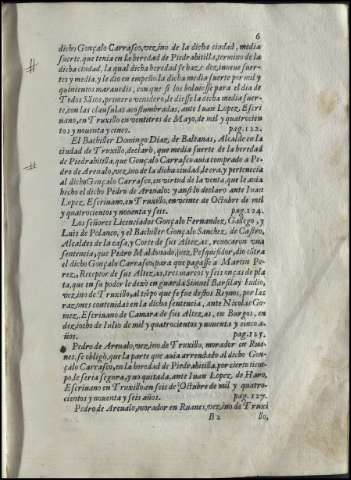 6
dicho Gonçalo Carrasco, vezino de la dicha ciudad, media
suerte que tenia en la heredad de Piedrahitilla, termino de la
dicha ciudad, la qual dicha heredad se haze diezinueue suer-
tes y media, y le dio en empeño la dicha media suerte por mil y
quinientos marauedis, con que si los boluiesse para el dia de
Todos Sãtos, primero venidero, le diesse la dicha media suer-
te, con las clausulas acostumbradas, ante Iuan Lopez, Escri
uano, en Truxillo en veintitres de Mayo, de mil y quatrocien
tos y nouenta y cinco. pag. 122.
El Bachiller Domingo Diaz, de Baltanas, Alcalde en la
ciudad de Truxillo, declarò, que media suerte de la heredad
de Piedrahitilla, que Gonçalo Carrasco auia comprado a Pe-
dro de Arenalo, vezino de la dicha ciudad, le era, y pertenecia
al dicho Gonçalo Carrasco, en virtud de la venta, que le auia
hecho el dicho Pedro de Arenalo: y ansi lo declarò ante Iuan
Lopez, Escriuano, en Truxillo, en veinte de Octubre de mil
y quatrocientos y nouenta y seis. pag. 124.
Los señores Licenciados Gonçalo Fernandez, Gallego, y
Luis de Polanco, y el Bachiller Gonçalo Sanchez, de Castro,
Alcaldes de la casa, y Corte de sus Altezas, reuocaron vna
sentencia, que Pedro Maldonado, juez, Pesquisidor, dio cõtra
el dicho Gonçalo Carrasco, para que pagasse a Martin Pe-
rez, Receptor de sus Altezas, tres marcos y seis onças de pla
ta, que en su poder le dexò en guarda Simuel Barsilay Iudio,
vezino de Truxillo, al tiẽpo que se fue destos Reynos, por las
razones contenidas en la dicha sentencia, ante Nicolas Go-
mez, Escriuano de Camara de sus Altezas, en Burgos, en
dieziocho de Iulio de mil y quatrocientos y nouenta y cinco a-
ños. pag. 125.
Pedro de Arenalo, vezino de Truxillo, morador en Rua-
nes, se obligò, que la parte que auia arrendado al dicho Gon-
çalo Carrasco, en la heredad de Piedrahitilla, por cierto tiem-
po, le seria segura, y no quitada, ante Iuan Lopez, de Haro,
Escriuano en Truxillo, en seis de Octubre de mil y quatro-
cientos y nouenta y seis años. pag. 127.
Pedro de Arenalo, morador en Ruanes, vezino de Truxi
B 2 llo,